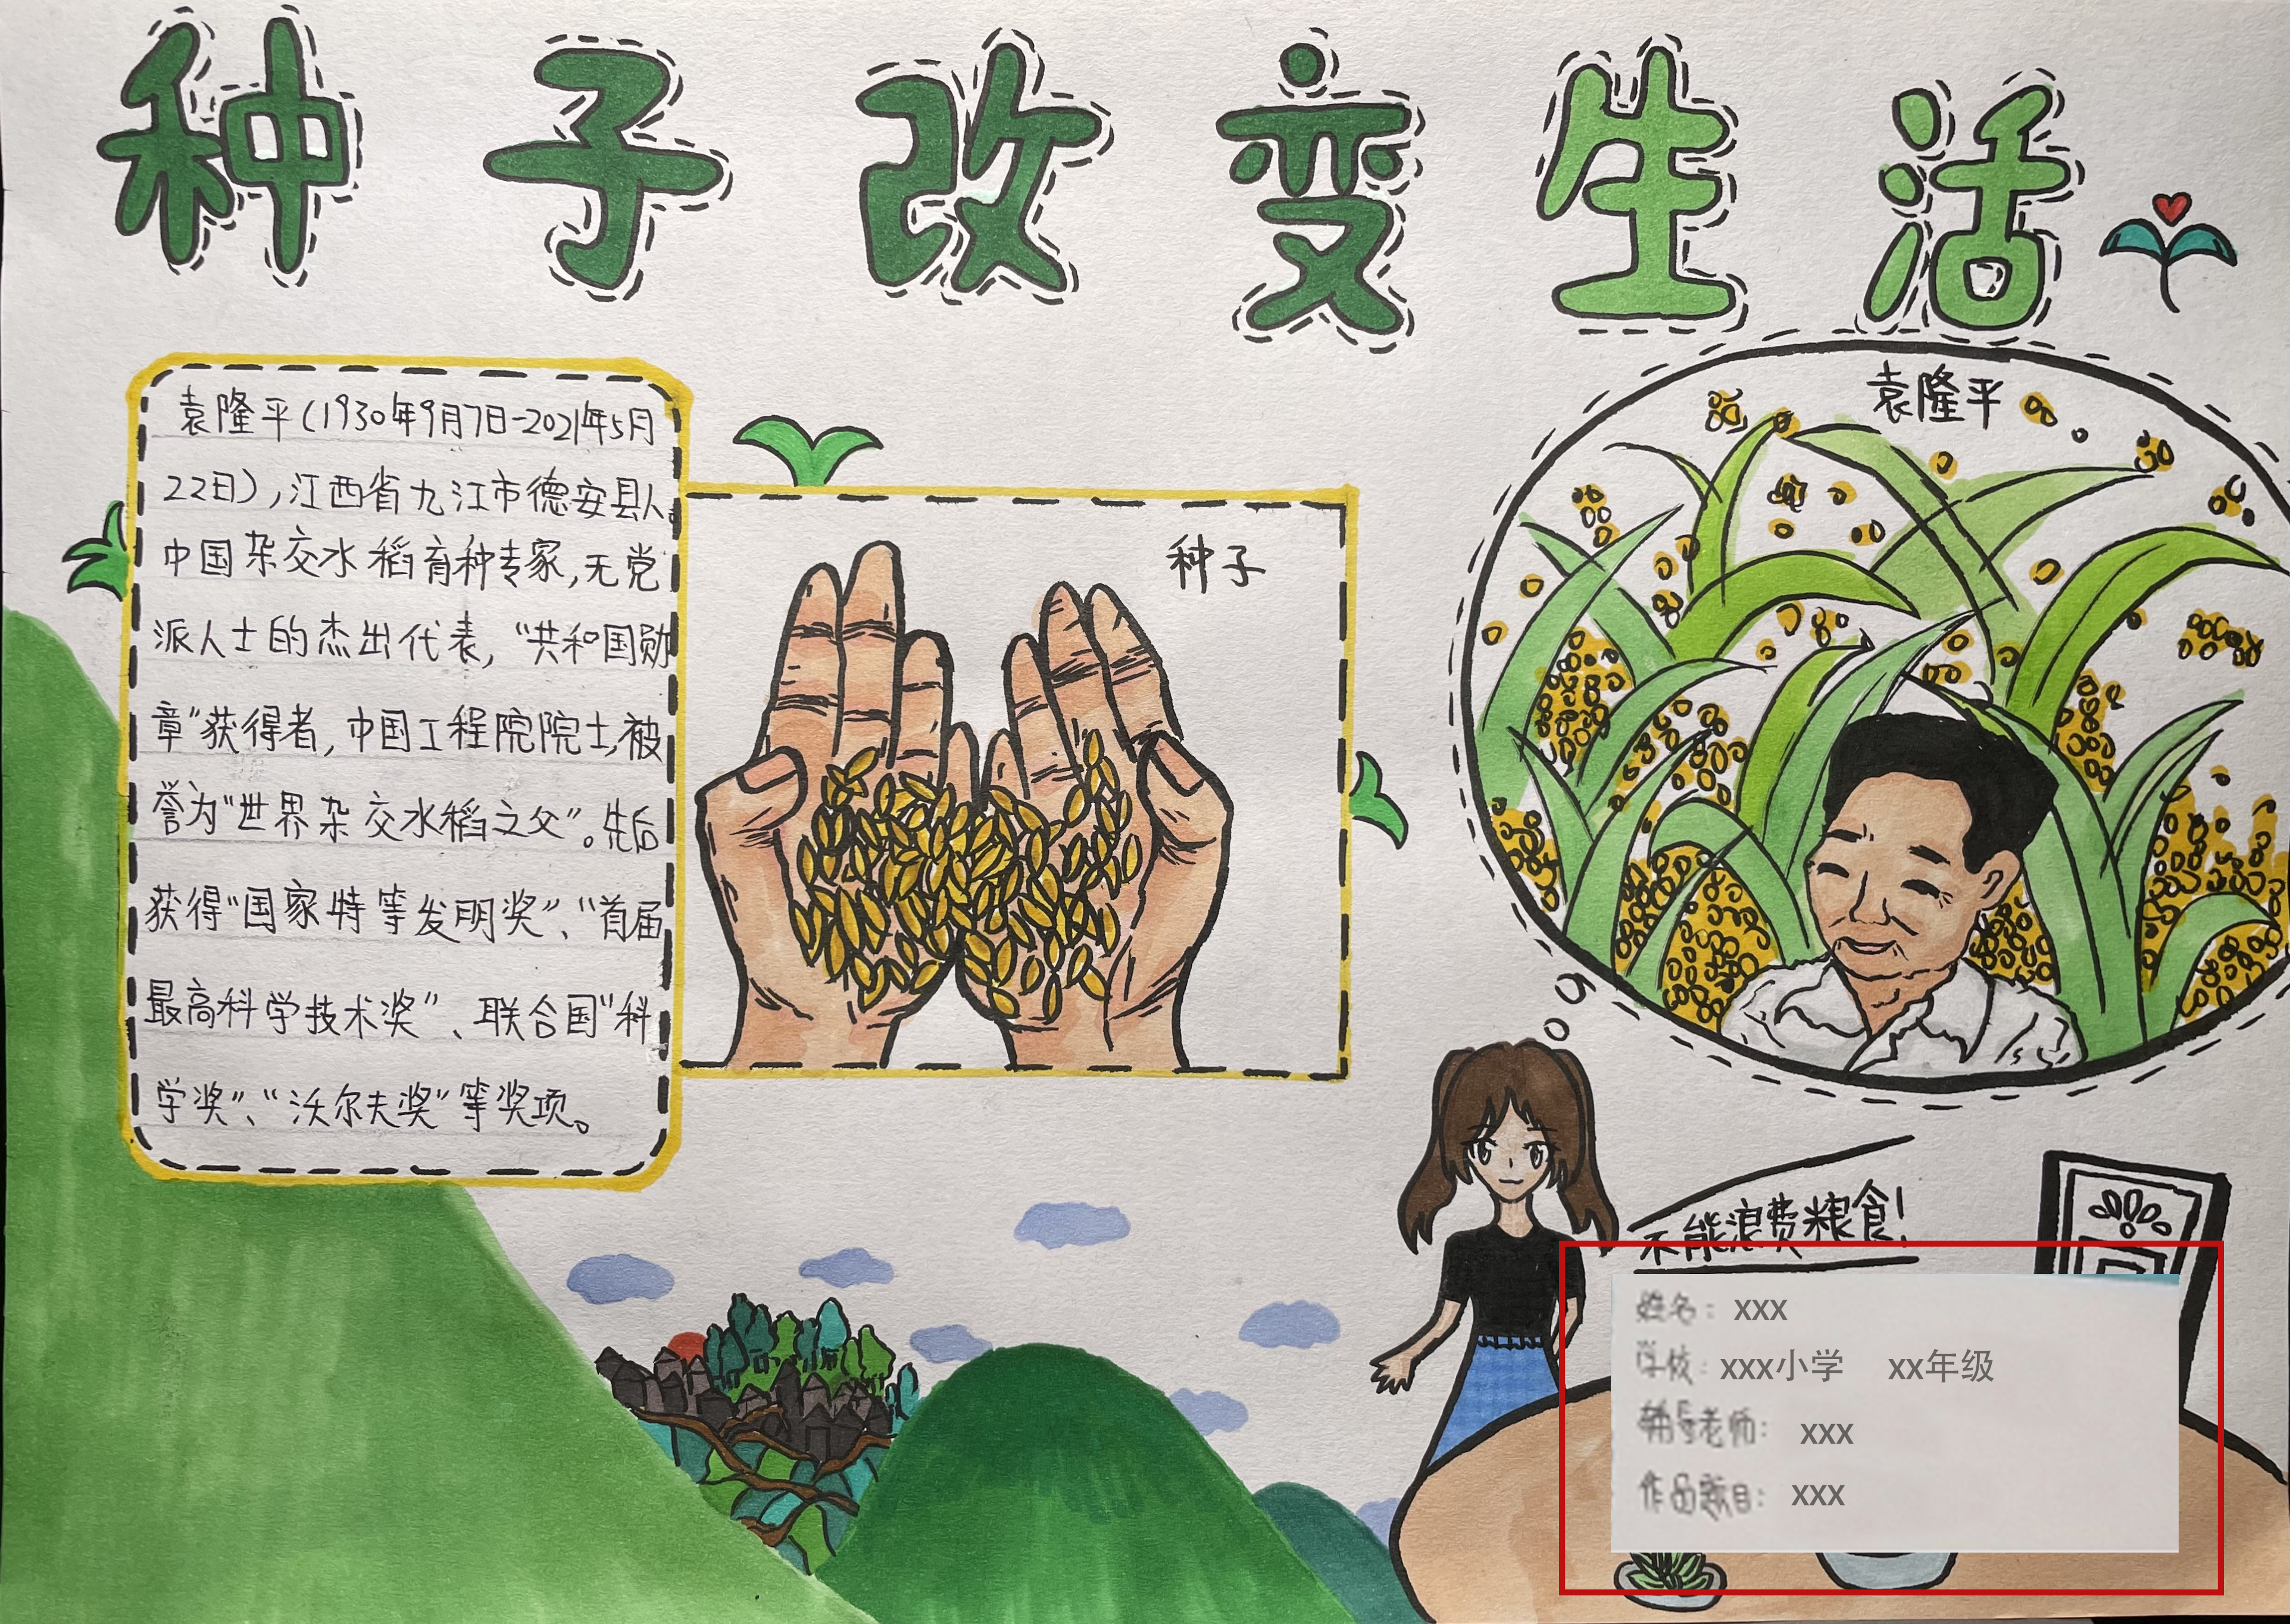 种子改变生活
袁隆平(1930年9月7日-2021年5月
22日),江西省九江市德安县人。
中国杂交水稻育种专家,无党
派人士的杰出代表,“共和国勋
章”获得者,中国工程院院士,被
誉为“世界杂交水稻之父”。先后
获得“国家特等发明奖”、“首届
最高科学技术奖”、联合国“科
学奖”、“沃尔夫奖”等奖项。
种子
袁隆平
不能浪费粮食!
姓名: xxx
学校: xxx小学 xx年级
辅导老师: xxx
作品题目: xxx